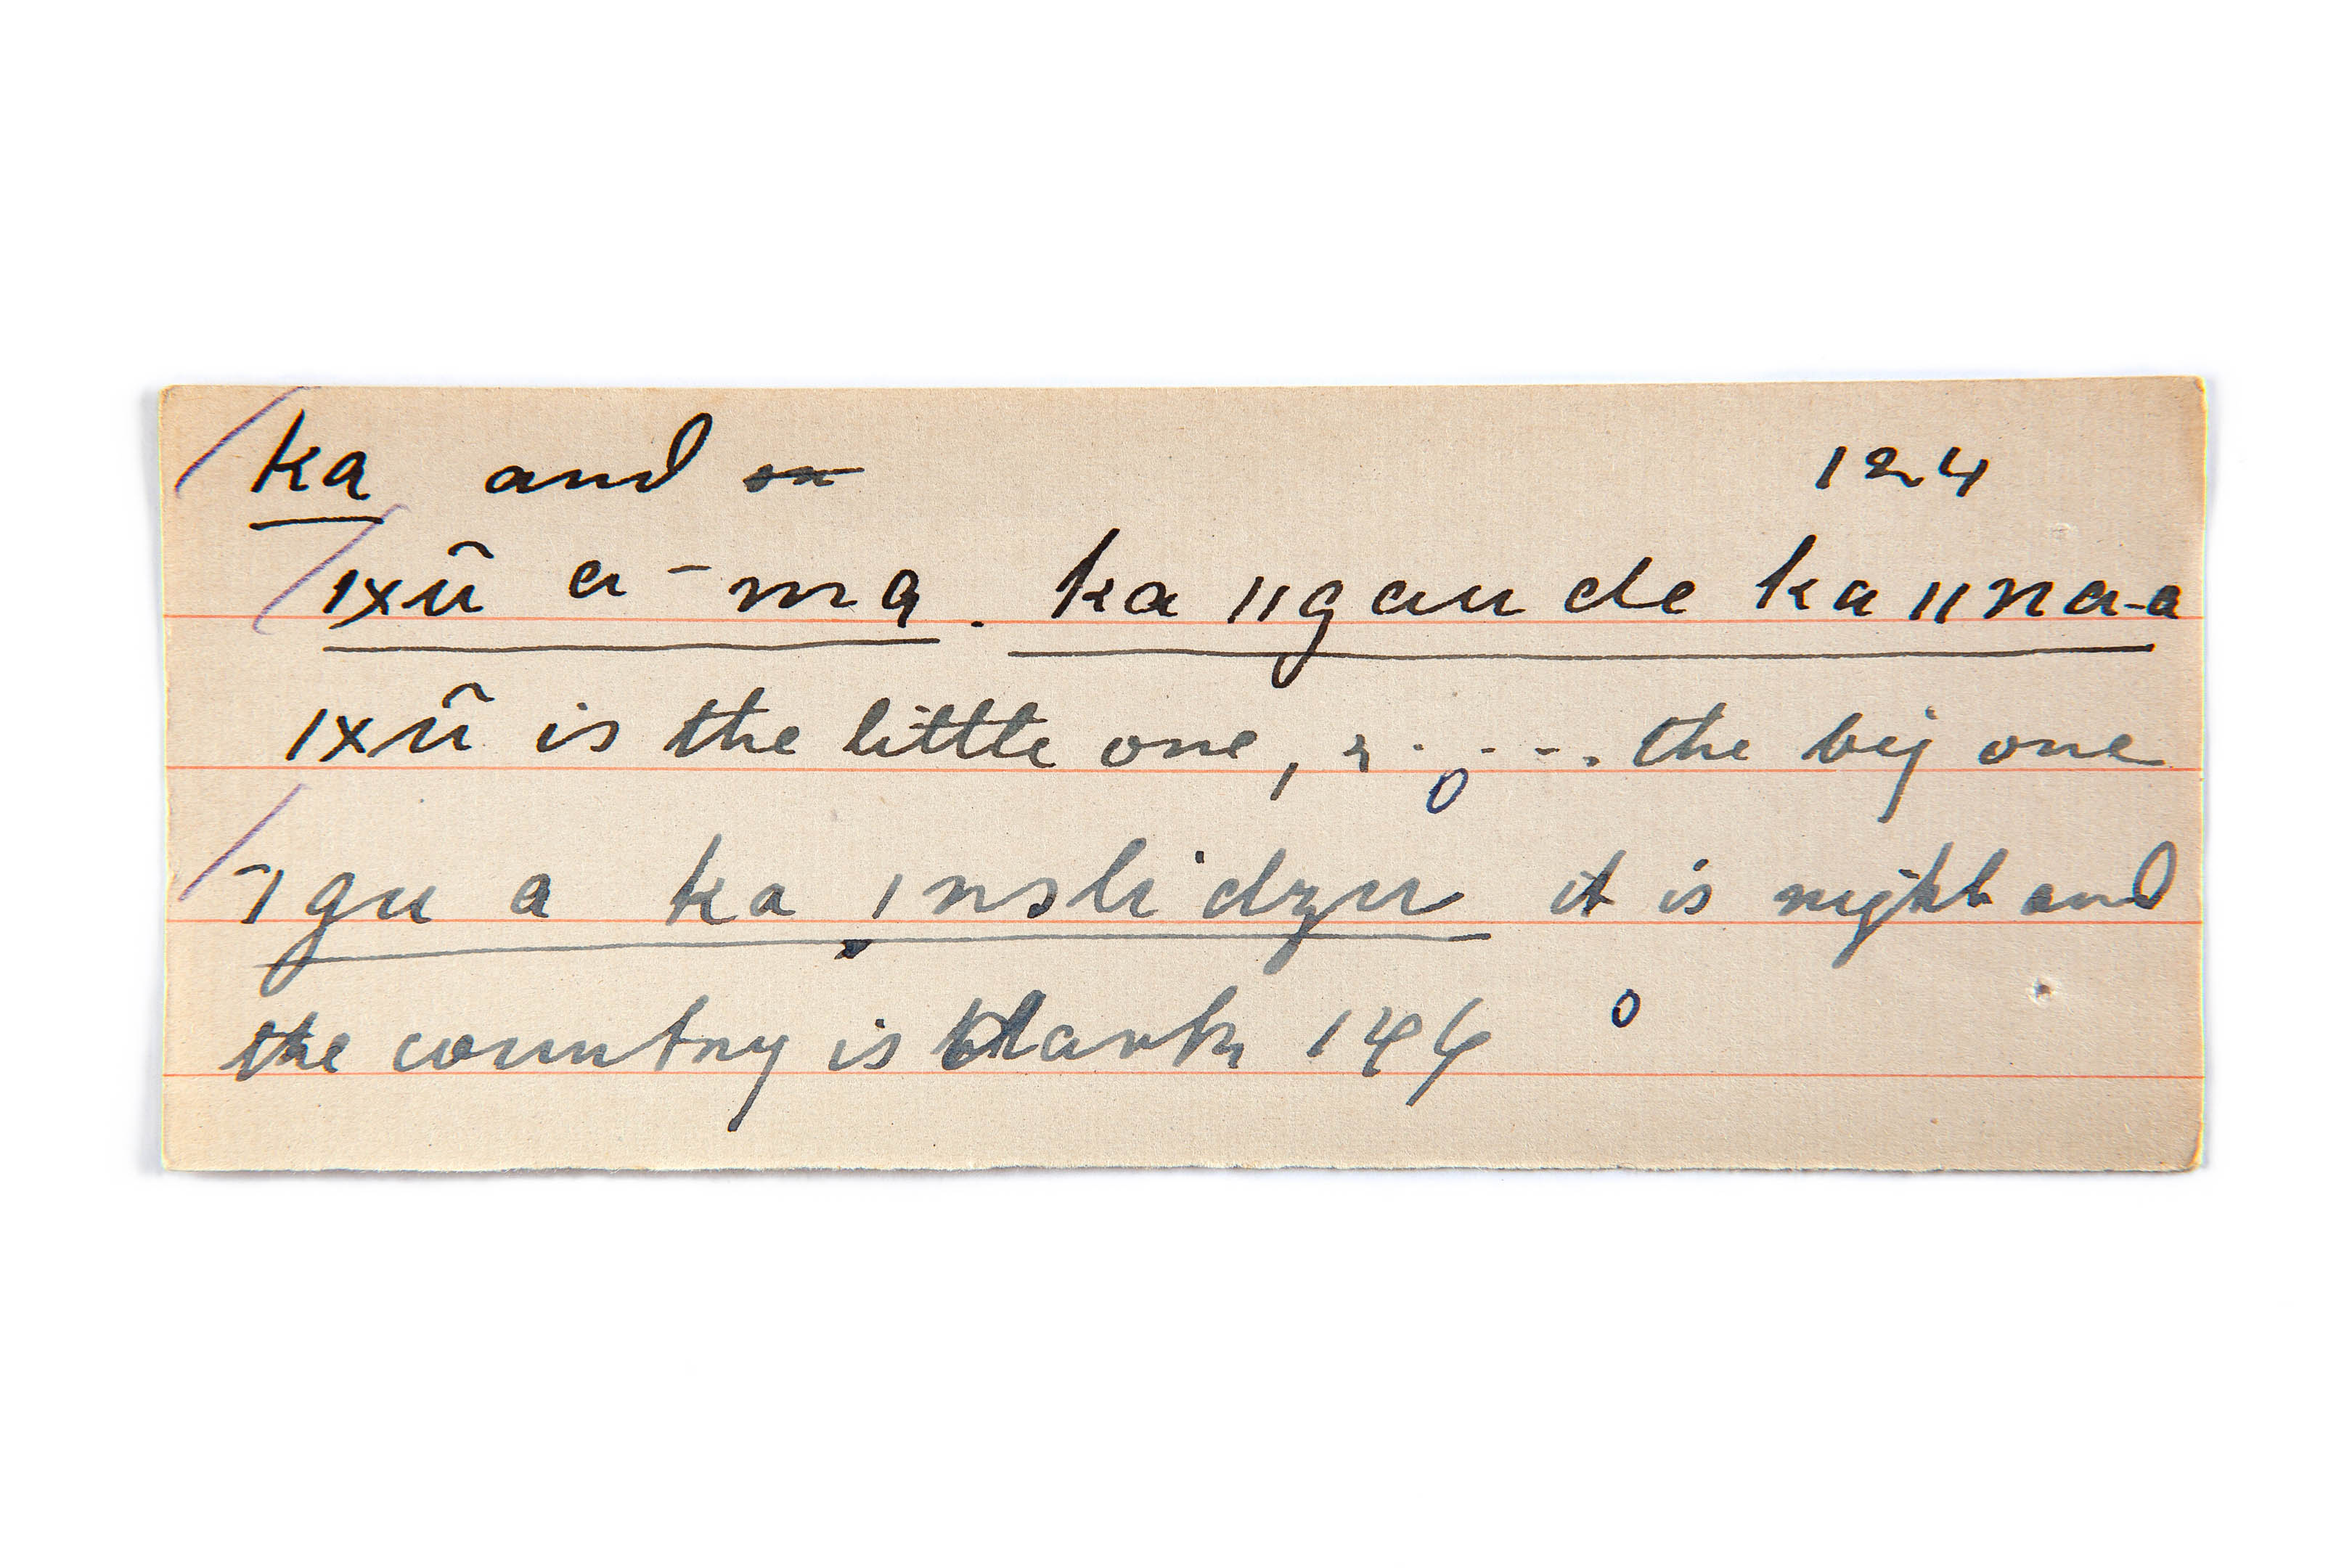 ka and 124
ıxû a - ma. ka ııgau de ka ıına-a
ıxû is the little one, . . - - . the big one
gu a ka ınsli dzu it is night and
the country is dark 144